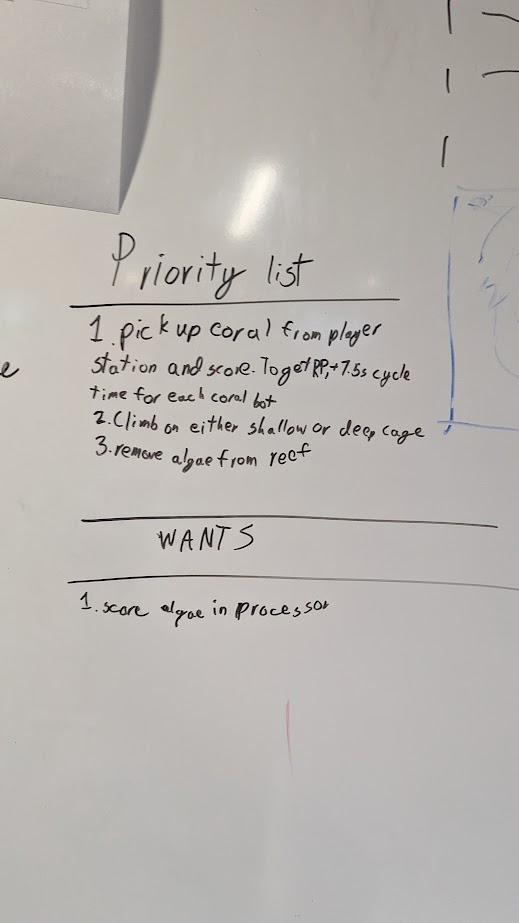 Priority list
1. pick up coral from player
station and score. To get RP, +7.5s cycle
time for each coral bot
2. Climb on either shallow or deep cage
3. remove algae from reef
WANTS
1. score algae in processor